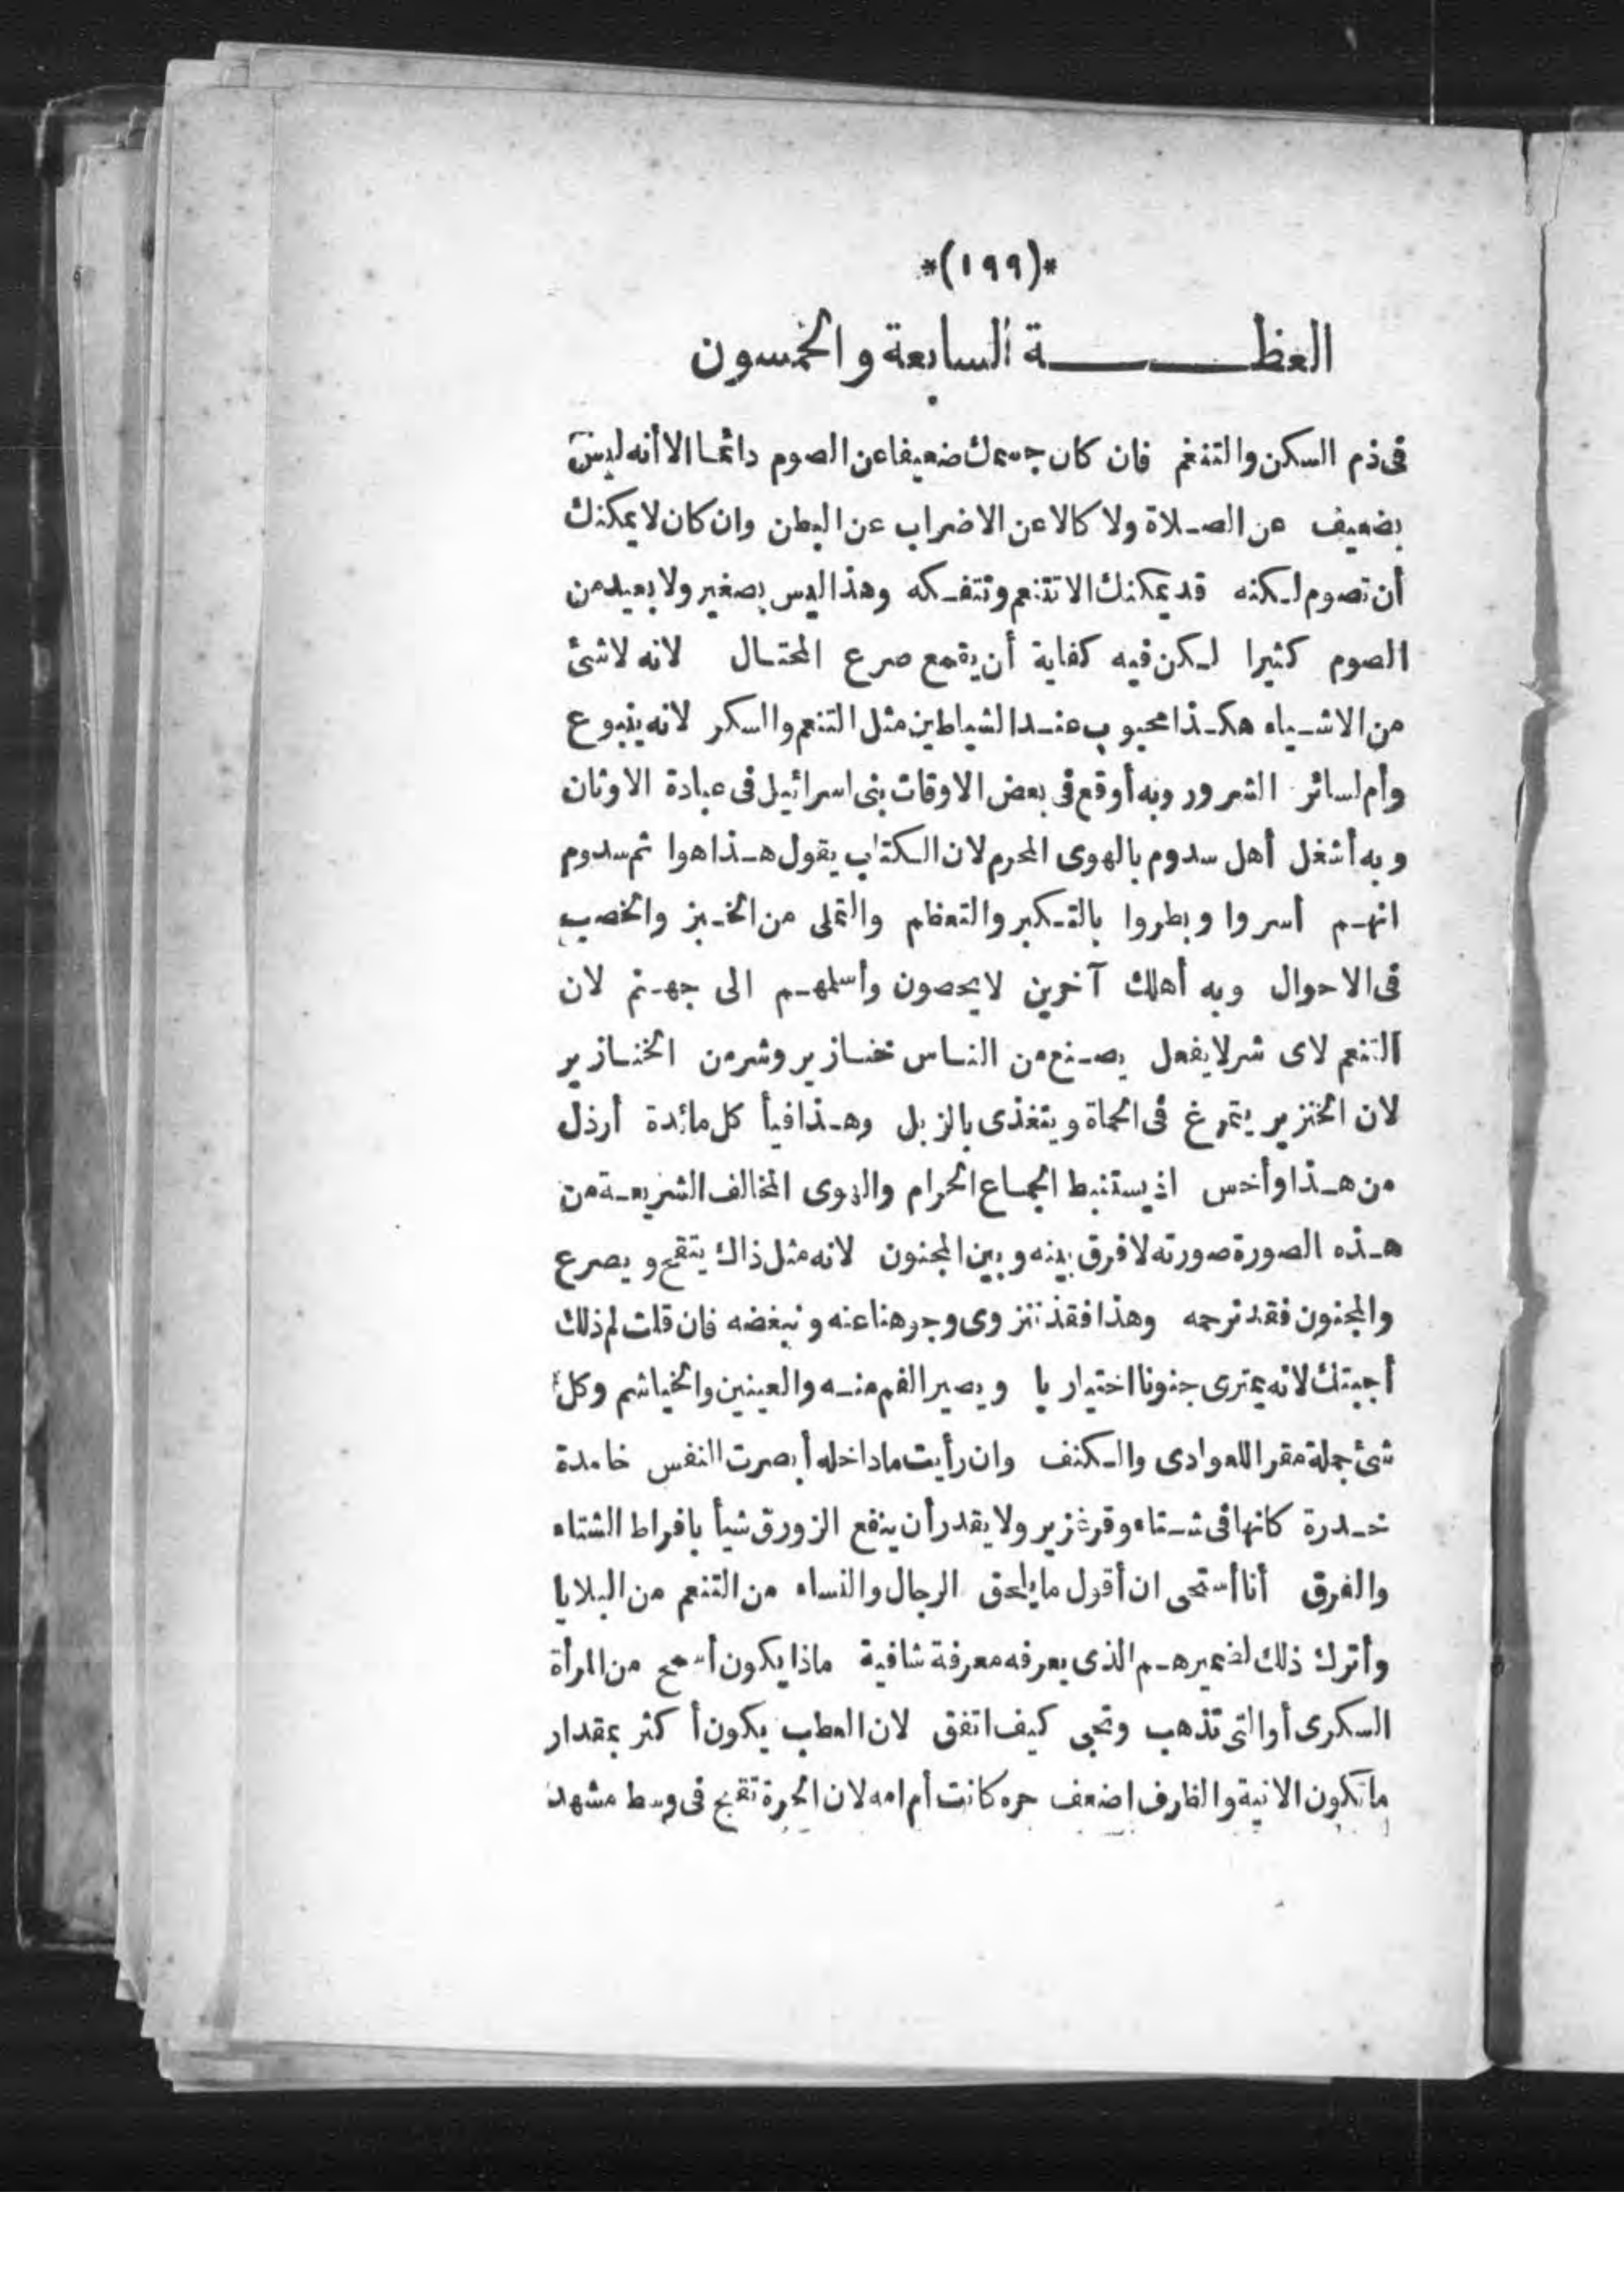 *(١٩٩)*
العظـــــة السابعة والخمسون
فى ذم السكن والتنغم فان كان جسمك ضعيفا عن الصوم دائما الا أنه ليس
بضعيف عن الصلاة ولا كالا عن الاضراب عن البطن وان كان لا يمكنك
أن تصوم لكنه قد يمكنك الا تتنعم وتتفكه وهذا ليس بصغير ولا بعيد من
الصوم كثيرا لكن فيه كفاية أن يقمع صرع المحتال لانه لا شئ
من الاشياء هكذا محبوب عند الشياطين مثل التنعم والسكر لانه ينبوع
وأم لسائر الشرور وبه أوقع فى بعض الاوقات بنى اسرائيل فى عبادة الاوثان
وبه أشغل أهل سدوم بالهوى المحرم لان الكتاب يقول هذا هو اثم سدوم
انهم أسروا وبطروا بالتكبر والتعظم والتملى من الخبز والخصب
فى الاحوال وبه أهلك آخرين لا يحصون وأسلمهم الى جهنم لان
التنعم لاى شر لا يفعل يصنع من الناس خنازير وشر من الخنازير
لان الخنزير يتمرغ فى الحماة ويتغذى بالزبل وهذا فيأ كل مائدة أرذل
من هذا وأخس اذ يستنبط الجماع الحرام والهوى المخالف الشريعة من
هذه الصورة صورته لا فرق بينه وبين المجنون لانه مثل ذاك يتقمح ويصرع
والمجنون فقد نرحمه وهذا فقد نزوى وجوهنا عنه ونبغضه فان قلت لم ذلك
أجبتك لانه يعترى جنونا اختياريا ويصير الفم منه والعينين والخياشم وكل
شئ جملة مقرا للعوادى والكنف وان رأيت ما داخله أبصرت النفس خامدة
خدرة كانها فى شتاء وقر غزير ولا يقدر أن ينفع الزورق شيأ بافراط الشتاء
والفرق أنا أستحى ان أقول ما يلحق الرجال والنساء من التنعم من البلايا
وأترك ذلك لضميرهم الذى يعرفه معرفة شافية ماذا يكون أسمج من المرأة
السكرى أو التى تذهب وتجى كيف اتفق لان العطب يكون أكثر بمقدار
ما تكون الانية والظارف اضعف حره كانت أم امه لان الحرة تقبح فى وسط مشهد